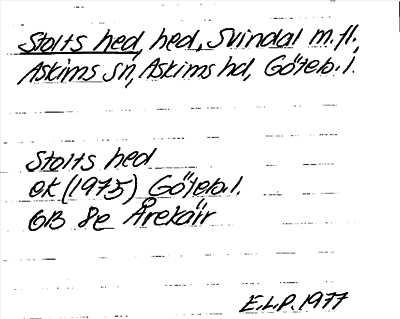 Stolts hed, hed, Svindal m.fl.,
Askims sn, Askims hd, Göteb. l.
Stolts hed
ek (1975) Göteb. l.
GB 8e Årekärr
E.L.P. 1977